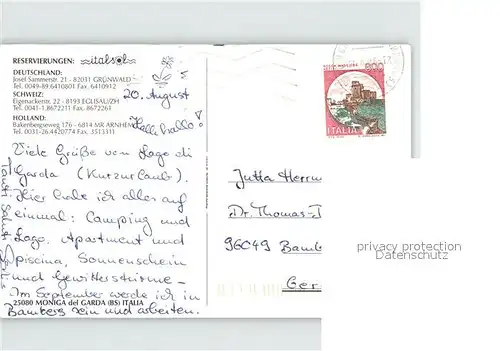 RESERVIERUNGEN: italsol
DEUTSCHLAND:
Josef Sammerstr. 21 - 82031 GRÜNWALD
Tel. 0049-89.6410801 Fax. 6410912
SCHWEIZ:
Eigenackerstr. 22 - 8193 EGLISAU/ZH
Tel. 0041-1.8672211 Fax. 8672261
HOLLAND:
Bakenbergseweg 176 - 6814 MR ARNHEM
Tel. 0031-26.4420774 Fax. 3513311
20. August
Hallihallo!
Viele Grüße vom Lago di
Garda (Kurzurlaub).
Hier habe ich alles auf
einmal: Camping und
Lago, Apartment und
piscina, Sonnenschein
und Gewitterstürme -
Im September werde ich in
Bamberg sein und arbeiten.
Tanti Saluti
25080 MONIGA del GARDA (BS) ITALIA
800
ITALIA
Jutta Herrm
Dr. Thomas-
96049 Bamb
Ger
privacy protection